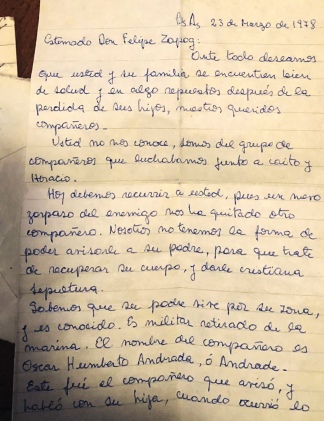 Bs As, 23 de Marzo de 1978
Estimado Don Felipe Zapog:
Ante todo deseamos
que usted y su familia se encuentren bien
de salud y en algo repuestos después de la
perdida de sus hijos, nuestros queridos
compañeros.-
Usted no nos conoce, somos del grupo de
compañeros que luchabamos junto a caito y
Horacio.
Hoy debemos recurrir a usted, pues un nuevo
zarpaso del enemigo nos ha quitado otro
compañero. Nosotros no tenemos la forma de
poder avisarle a su padre, para que trate
de recuperar su cuerpo, y darle cristiana
sepultura.
Sabemos que su padre vive por su zona,
y es conocido. Es militar retirado de la
marina. El nombre del compañero es
Oscar Humberto Andrada, ó Andrade.
Este fué el compañero que avisó, y
habló con su hija, cuando ocurrió lo